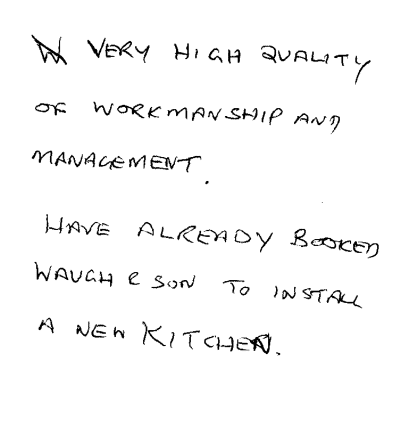 VERY HIGH QUALITY
OF WORKMANSHIP AND
MANAGEMENT.
HAVE ALREADY BOOKED
WAUGH & SON TO INSTALL
A NEW KITCHEN.